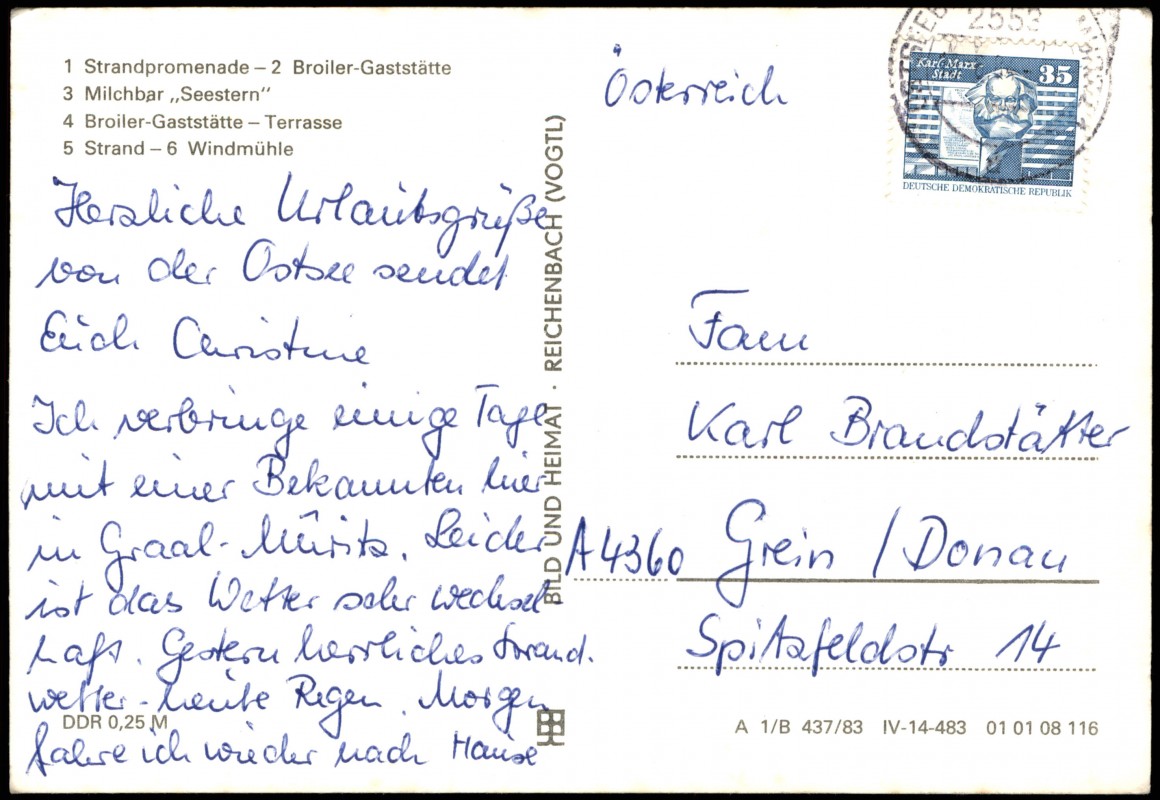 1 Strandpromenade – 2 Broiler-Gaststätte
3 Milchbar „Seestern"
4 Broiler-Gaststätte – Terrasse
5 Strand – 6 Windmühle
Herzliche Urlaubsgrüße
von der Ostsee sendet
Euch Christine
Ich verbringe einige Tage
mit einer Bekannten hier
in Graal-Müritz. Leider
ist das Wetter sehr wechsel
haft. Gestern herrliches Strand.
wetter - heute Regen. Morgen
fahre ich wieder nach Hause
DDR 0,25 M
BILD UND HEIMAT · REICHENBACH (VOGTL)
Österreich
2553
Karl-Marx-
Stadt
35
DEUTSCHE DEMOKRATISCHE REPUBLIK
Fam
Karl Brandstätter
A 4360 Grein / Donau
Spitzfeldstr 14
A 1/B 437/83 IV-14-483 01 01 08 116